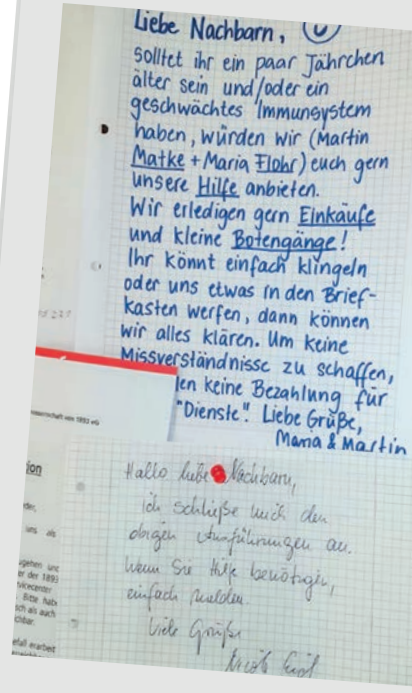 Liebe Nachbarn,
solltet ihr ein paar Jährchen
älter sein und/oder ein
geschwächtes Immunsystem
haben, würden wir (Martin
Matke + Maria Flohr) euch gern
unsere Hilfe anbieten.
Wir erledigen gern Einkäufe
und kleine Botengänge!
Ihr könnt einfach klingeln
oder uns etwas in den Brief-
kasten werfen, dann können
wir alles klären. Um keine
Missverständnisse zu schaffen,
len keine Bezahlung für
"Dienste". Liebe Grüße,
Maria & Martin
ssenschaft von 1893 eG
Hallo liebe Nachbarn,
ich schließe mich den
obigen Ausführungen an.
Wenn Sie Hilfe benötigen,
einfach melden.
Viele Grüße
ion
uns als
gehen und
er der 1893
rvicecenter
Bitte hab
och als auch
chbar.
efall erarbeit